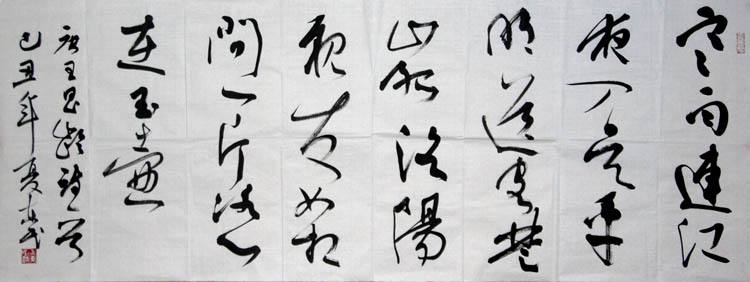 寒雨連江
夜入吳平
明送客楚
山孤洛陽
親友如相
問一片冰心
在玉壺
唐王昌齡詩一首
己丑年夏